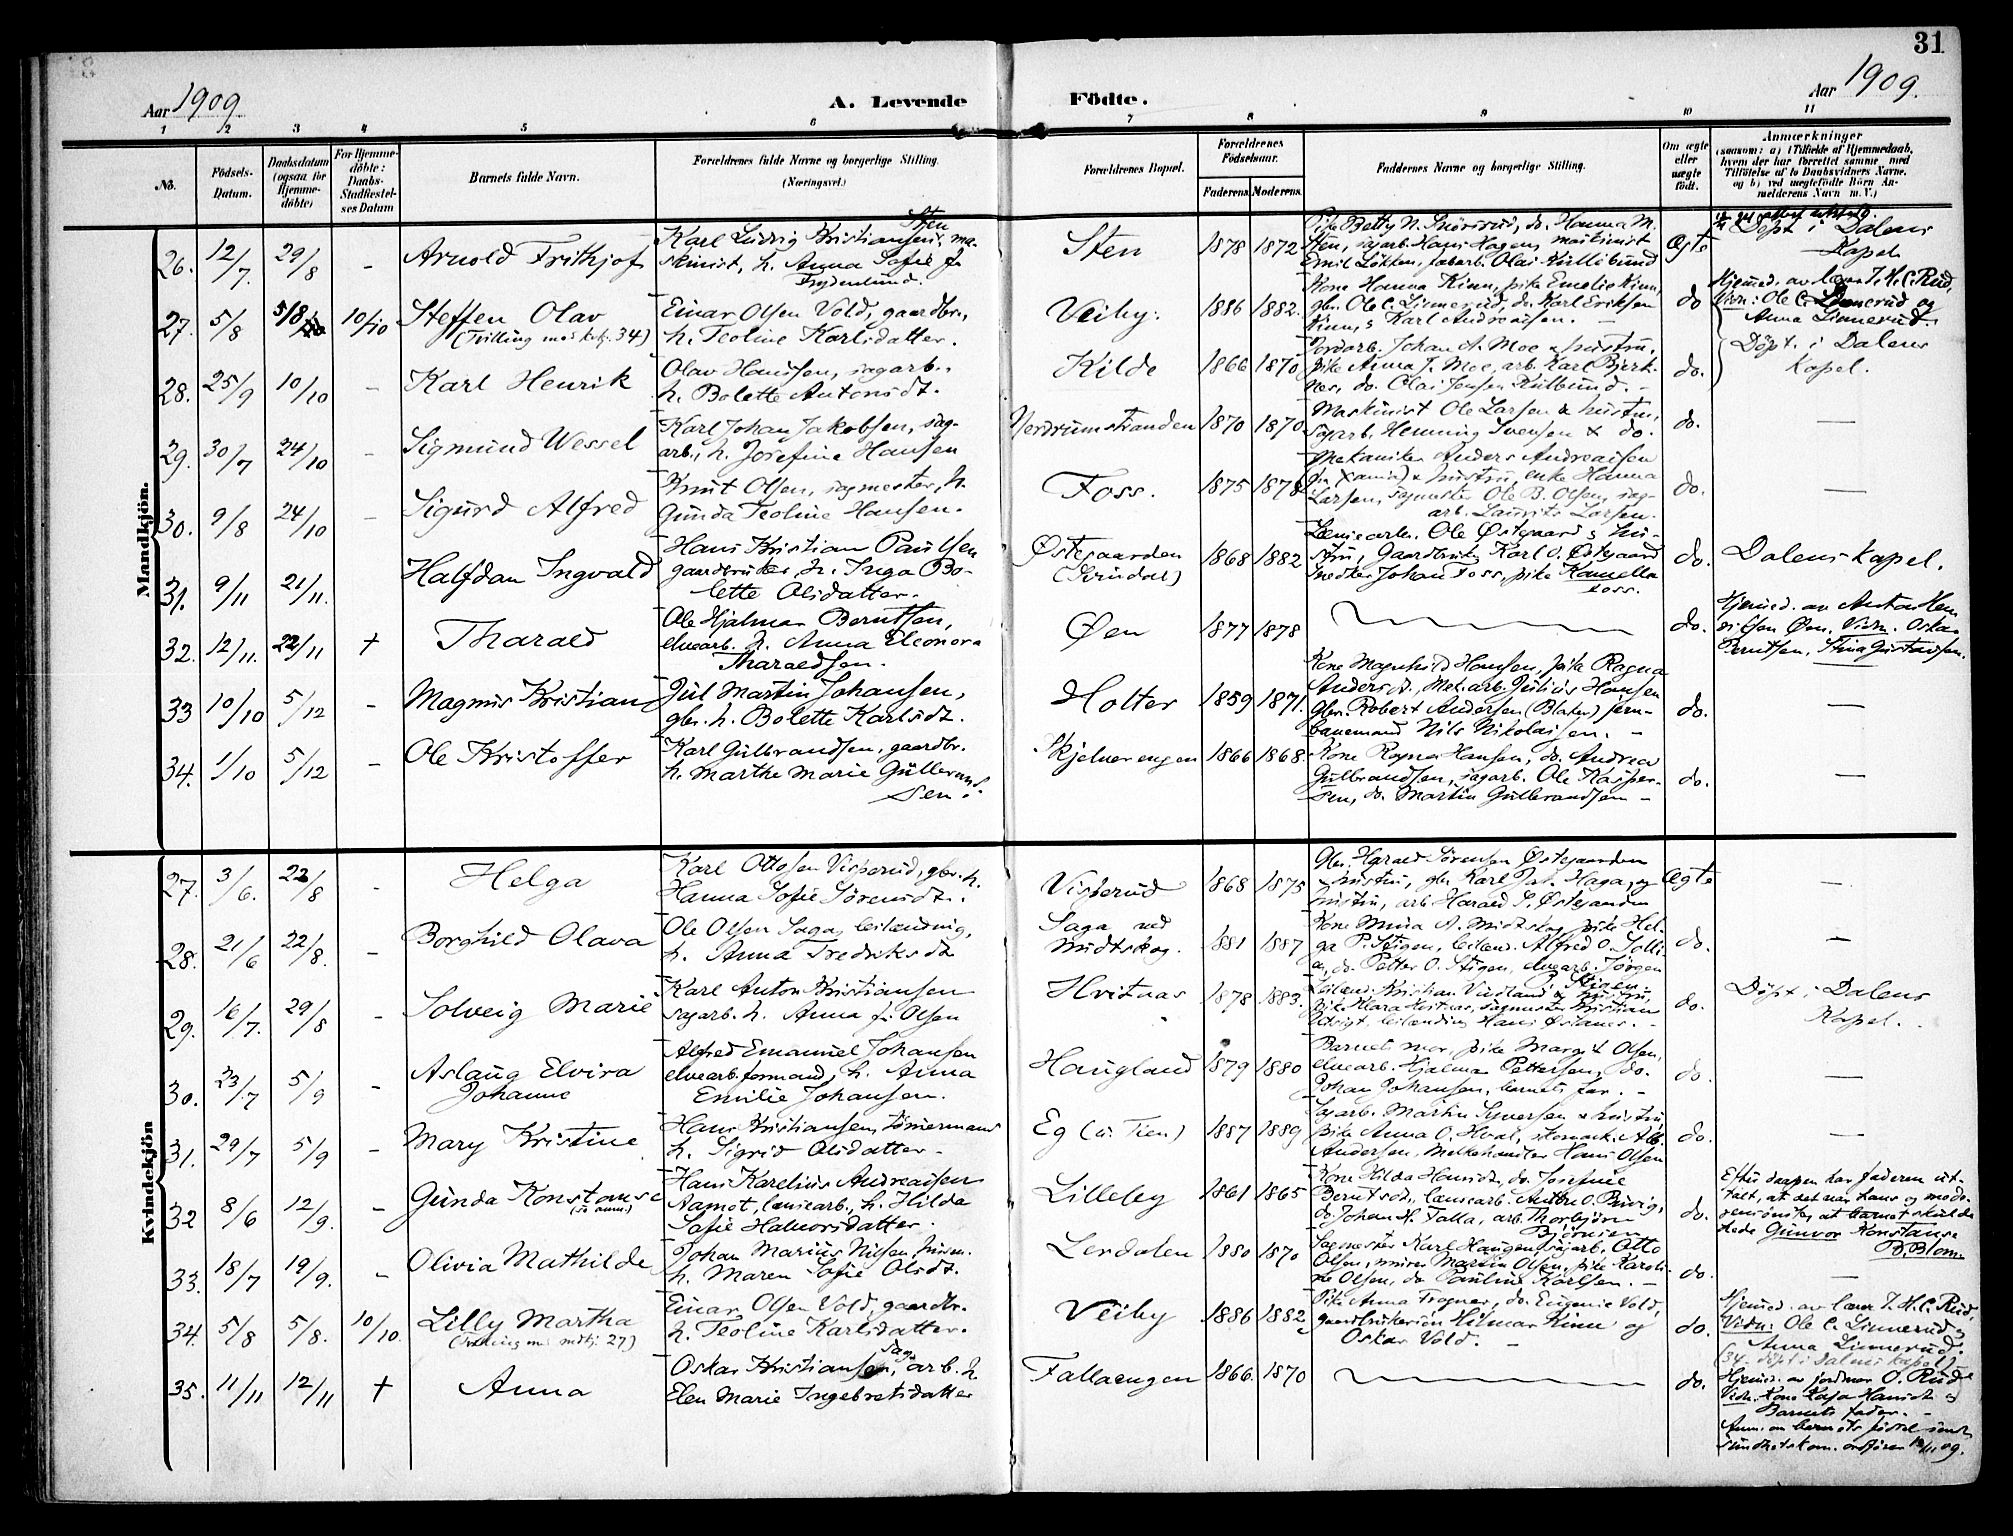 31
Aar 1909
A. Levende
Födte.
Aar 1909.
1 2 3 4 5 6 7 8 9 10 11
No.
Födsels-
Datum.
Daabsdatum
(ogsaa for
Hjemme-
döbte)
For Hjemme-
döbte:
Daabs-
Stadfæstel-
ses Datum
Barnets fulde Navn.
Forældrenes fulde Navne og borgerlige Stilling.
(Næringsvei.)
Forældrenes Bopæl.
Forældrenes
Födselsaar.
Faderens. Moderens.
Faddernes Navne og borgerlige Stilling.
Om ægte
eller
uægte
födt.
Anmærkninger
(saasom: a) i Tilfælde af Hjemmedaab,
hvem der har forrettet samme, med
Tilföielse af to Daabsvidners Navne,
og b) ved uægtefödte Börn An-
melderens Navn m. V.)
Mandkjön.
26. 12/7. 29/8 - Arnold Frithjof
Karl Ludvig Kristiansen Sten, ma-
skinist, h. Anna Sofie f.
Frydenlund.
Sten 1878 1872
Pike Betty N. Snörsrud, do. Hanna M.
Sten, sagarb. Hans Hagen, maskinist
Emil Løkken, fabarb. Olai Kullebund
Ægte
Døpt i Dalens
Kapel
27. 5/8 5/8 10/10 Steffen Olav
(Tvilling med kvkj. 34)
Einar Olsen Vold, gaardbr.,
h. Teoline Karlsdatter.
Veiby. 1886 1882.
Kone Hanna Kinn, pike Emelie Kinn,
gbr. Ole C. Linnerud, do. Karl Eriksen
Kinn, & Karl Andreassen. -
do
Hjemmed. av lærer T. H. C. Rud,
Vidn: Ole C. Linnerud og
Anna Linnerud.
28. 25/9 10/10 - Karl Henrik
Olav Hansen, sagarb.,
h. Bolette Antonsdt.
Kilde 1866 1870
Jordarb. Johan A. Moe & hustru,
pike Anna J. Moe, arb. Karl Bjerk-
nes, do. Olai Jensen Kullebund. -
do.
Døpt. i Dalens
Kapel.
29. 30/7 24/10 - Sigmund Wessel
Karl Johan Jakobsen, sag-
arb., h. Josefine Hansen
Nerdrumstranden 1870 1870
Maskinist Ole Larsen & hustru,
sagarb. Henning Svensen & do.
do. —
30. 9/8 24/10 - Sigurd Alfred
Knut Olsen, sagmester, h.
Gunda Teoline Hansen.
Foss. 1875 1878
Mekaniker Anders Andreassen
& hustru, enke Hanna
Larsen, sagmester Ole B. Olsen, sag-
arb. Laurits Larsen.
do. —
31. 9/11 21/11. Halfdan Ingvald
Hans Kristian Paulsen
gaardbruker, h. Inga Bo-
lette Olsdatter.
Østegaarden
(Svindal) 1868 1882
Lænsearb. Ole Østgaard & hu-
stru, Gaardbruker Karl O. Østgaard
Snedker Johan Foss, pike Kamella
Foss.
do. Dalens kapel.
32. 12/11. 22/11 + Tharald
Ole Hjalmar Berntsen,
elvearb. h. Anna Eleonora
Tharaldsen.
Øen 1877 1878
do.
Hjemmed. av Anton Hen-
riksen Øen. Vidn. Oskar
Berntsen, Stina Gustavsen.
33 10/10 5/12 - Magnus Kristian
Jul Martin Johansen,
gbr. h. Bolette Karlsdt.
Holter 1859 1871.
Kone Magnhild Hansen, pike Ragna
Andersd., Mek. arb. Julius Hansen
Gbr. Robert Andersen (Blaker) jern-
banemand Nils Nikolaisen. -
do. —
34. 1/10 5/12 - Ole Kristoffer
Karl Gulbrandsen, gaardbr.
h. Marthe Marie Gulbrand-
sen.
Skjelverengen 1866 1868.
Kone Ragna Hansen, do. Andrea
Gulbrandsen, sagarb. Ole Kasper-
sen, do. Martin Gulbrandsen -
do. —
Kvindekjön
27. 3/6. 22/8 - Helga
Karl Ottosen Visperud, gbr. h.
Hanna Sofie Sørensdt.
Visperud 1868 1875
Gbr. Harald Sørensen Østegaarden
& hustru, gbr Karl Joh. Haga, og
hustru, arb Harald S. Østegaarden
Ægte —
28. 21/6 22/8. - Borghild Olava
Ole Olsen Saga, leilænding,
h. Anna Fredriksdt
Saga ved
Midtskog. 1881 1887
Kone Mina A. Midtskog, pike Hel-
ga P. Stigen, leilænd. Alfred O. Solli-
en, do. Petter O. Stigen, elvearb. Jørgen
Stigen.
do. —
29. 16/7. 29/8 - Solveig Marie
Karl Anton Kristiansen
sagarb. h. Anna f. Olsen
Hvitnas 1878 1883.
Leilænd. Kristian Vindland & hustru,
pike Klara Hvitnas, sagmester Kristian
Utsigt, leilænding Hans Østanes. -
do.
Døpt i Dalens
Kapel.
30. 23/7 5/9 - Aslaug Elvira
Johanne
Alfred Emanuel Johansen
elvearb. formand, h. Anna
Emilie Johansen.
Haugland 1879 1880
Barnets mor, pike Margit Olsen,
elvearb. Hjalmar Pettersen, do.
Johan Johansen, barnets far. -
do. —
31. 29/7 5/9 - Mary Kristine
Hans Kristiansen, tømermand
h. Sigrid Olsdatter -
Eg (u. Tien) 1887 1889
Sagarb. Martin Syversen & hustru,
pike Anna O. Hval, skomak. Alb.
Andersen, Melkehandler Hans Olsen
do. —
32 8/6 12/9. - Gunda Konstanse
Hans Karelius Andreassen
Aamot, lænsearb., h. Hilda
Sofie Halvorsdatter.
Lilleby 1861 1865
Kone Hilda Hansdt., do. Josefine
Berntsdt., lænsearb. Anthe O. Buvig,
do. Johan H. Falla, arb. Thorbjørn
Bjørnsen
do.
Efter daapen har faderen ut-
talt, at det var hans og mode-
rens ønske, at barnet skulde
hede Gunvor Konstanse
B. Blom
33. 18/7 19/9. - Olivia Mathilde
Johan Marius Nilsen, murm.
h. Maren Sofie Olsdt.
Lerdalen 1880 1870
Sagmester Karl Haugen, sagarb. Otto
Olsen, murer Martin Olsen, pike Karoli-
ne Olsen, do Pauline Karlsen. -
do. —
34. 5/8 5/8. 10/10. Lilly Martha
(Tvilling m. mdkj. 27)
Einar Olsen Vold, gaardbr.
h. Teoline Karlsdatter.
Veiby 1886 1882
Pike Anna Fragner, do. Eugenie Vold,
gaardbrukersøn Hilmar Kinn og
Oskar Vold. -
do.
Hjemmed. av lærer T. H. C. Rud,
Vidn: Ole C. Linnerud &
Anna Linnerud.
(34 - døpt i Dalens kapel)
35. 11/11 12/11 + Anna
Oskar Kristiansen, sagarb. h.
Elen Marie Ingebretsdatter
Fallaengen 1866. 1870
do.
Hjemmed. av jordmor O. Rud
Vidn. Kone Kaja Hansdt. &
Barnets fader. -
Anm. om barnets fødsel sendt
sundhetskom. ordfører 18/11 09.